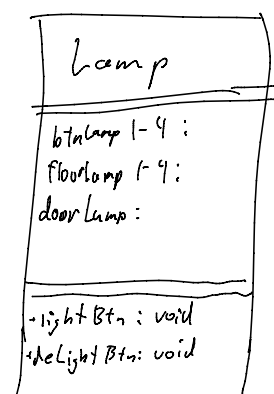 Lamp
btnLamp 1-4 :
floorLamp 1-4 :
doorLamp :
+lightBtn : void
+deLightBtn: void